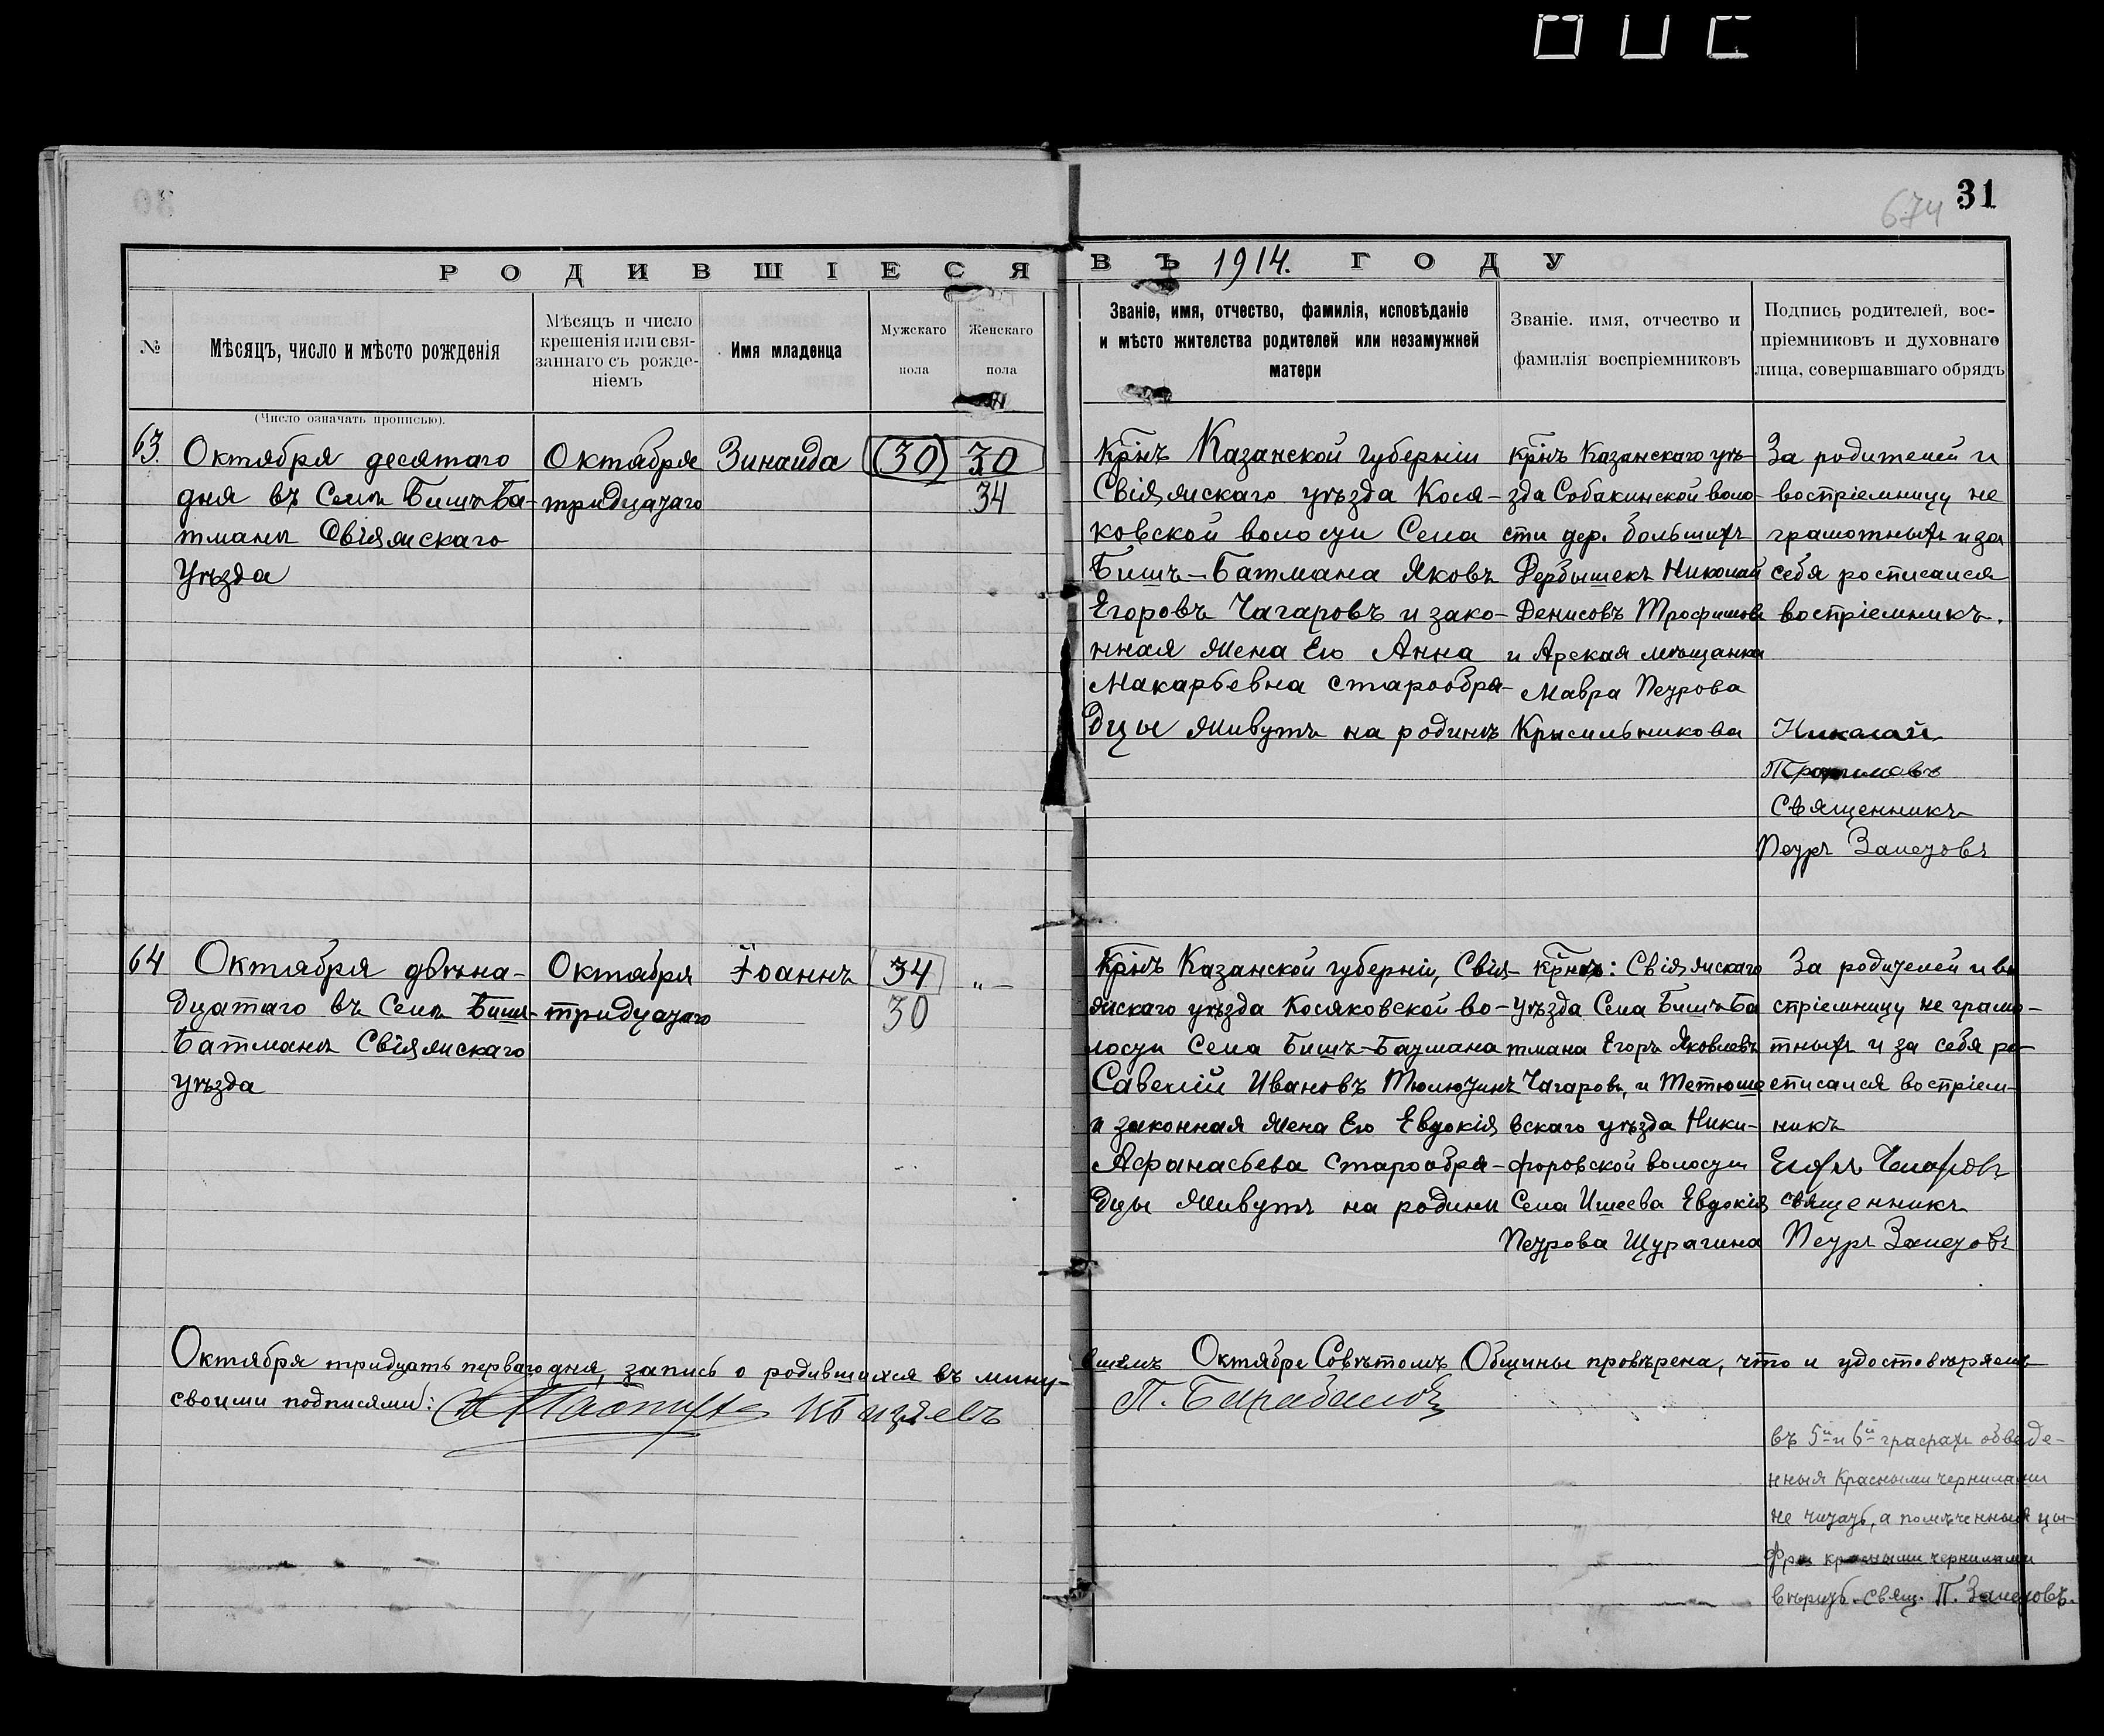 31
674
РОДИВШІЕСЯ ВЪ 1914. ГОДУ
№
Мѣсяцъ, число и мѣсто рожденія
Мѣсяцъ и число
крещенія или свя-
заннаго съ рожде-
ніемъ
Имя младенца
Мужскаго
пола
Женскаго
пола
Званіе, имя, отчество, фамилія, исповѣданіе
и мѣсто жителства родителей или незамужней
матери
Званіе. имя, отчество и
фамилія воспріемниковъ
Подпись родителей, вос-
пріемниковъ и духовнаго
лица, совершавшаго обрядъ
(Число означать прописью).
63.
Октября десятаго
дня въ Селѣ Бишъ-Ба-
тманѣ Свіяжскаго
Уѣзда
Октября
тридцатаго
Зинаида
(30)
30
34
Крнъ Казанской губерніи
Свіяжскаго уѣзда Кося-
ковской волости Села
Бишъ-Батмана Яковъ
Егоровъ Чагаровъ и зако-
нная жена Его Анна
Макарьевна старообря-
дцы живутъ на родинѣ
крнъ Казанскаго уѣ-
зда Собакинской воло-
сти дер. большихъ
Дербышекъ Николай
Денисовъ Трофимовъ
и Арская мѣщанка
Мавра Петрова
Красильникова
За родителей и
воспріемницу не
грамотныхъ и за
себя росписался
воспріемникъ.
Николай
Трофимовъ
Священникъ
Петръ Залетовъ
64
Октября двѣна-
дцатаго въ Селѣ Бишъ-
Батманѣ Свіяжскаго
уѣзда
Октября
тридцатаго
Іоаннъ
34
30
„—
Крнъ Казанской губерніи, Свія-
жскаго уѣзда Косяковской во-
лости Села Бишъ-Батмана
Савелій Ивановъ Тюлютинъ
и законная жена Его Евдокія
Афанасьева старообря-
дцы живутъ на родинѣ
крнъ: Свіяжскаго
Уѣзда Села Бишъ Ба
тмана Егоръ Яковлевъ
Чагаровъ, и Тетюше
вскаго уѣзда Ники-
форовской волости
Села Ишеева Евдокія
Петрова Щурагина
За родителей и во
спріемницу не грамо-
тныхъ и за себя ро-
списался воспріем-
никъ
Егоръ Чагаровъ
священникъ
Петръ Залетовъ
Октября тридцать перваго дня, запись о родившихся въ мину-
вшемъ Октябре Совѣтомъ Общины провѣрена, что и удостовѣряемъ
своими подписями:
въ 5й и 6й графахъ обведе-
нныя красными чернилами
не читать, а помѣченныя ци-
фры красными чернилами
вѣрить. свящ. П. Залетовъ.